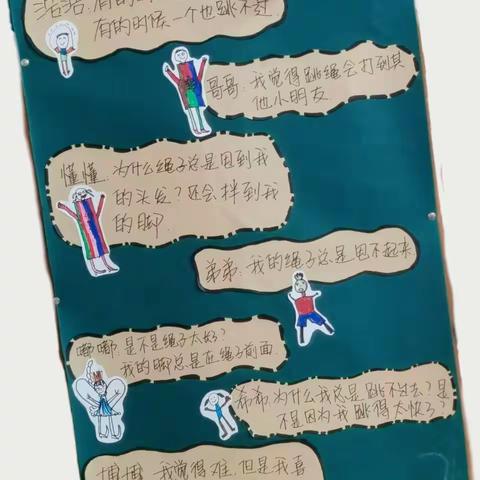 有的时候一个也跳不过
哥哥：我觉得跳绳会打到其
他小朋友
懂懂：为什么绳子总是甩到我
的头发？还会拌到我
的脚
弟弟：我的绳子总是甩不起来
嘟嘟：是不是绳子太短？
我的脚总是在绳子前面
希希：为什么我总是跳不过去？是
不是因为我跳得太快了？
博博：我觉得难，但是我喜